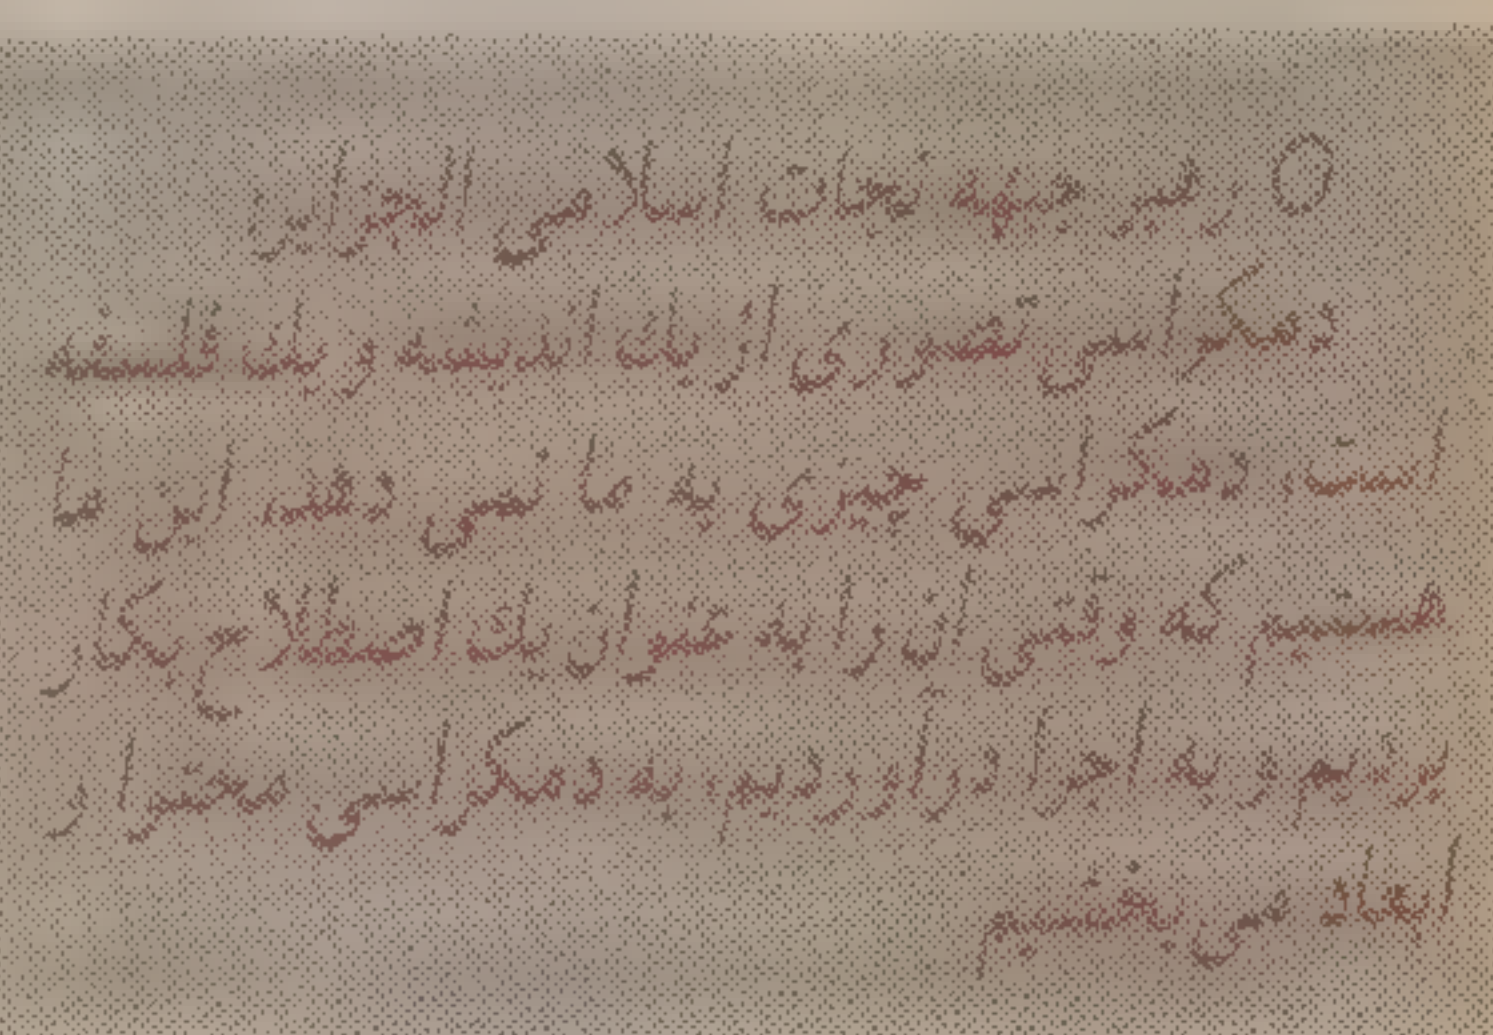 رئیس جبهه نجات اسلامی الجزایر:
دمکراسی تصوری از یك اندیشه و یك فلسفه
است، دمکراسی چیزی به ما نمی دهد، این ما
هستیم که وقتی آن را به عنوان یك اصطلاح بکار
بردیم و به اجرا درآوردیم، به دمکراسی محتوا و
ابعاد می بخشیم